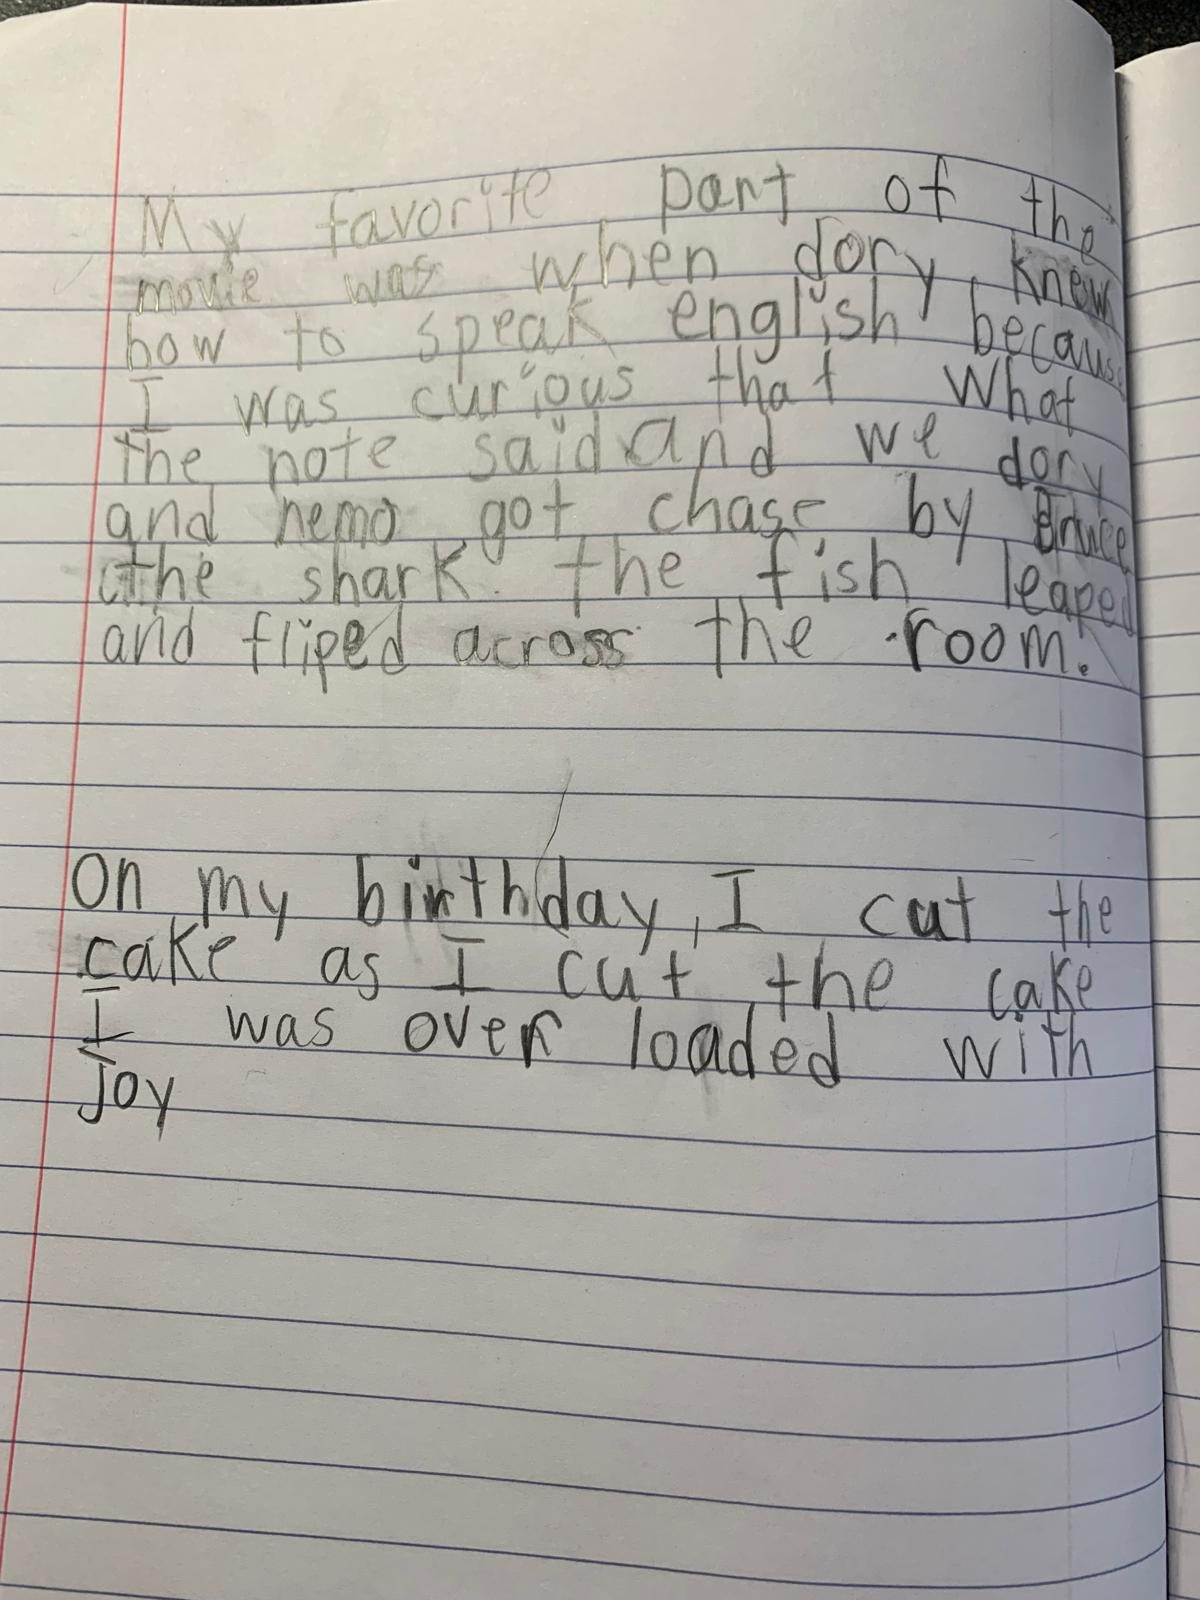 My favorite part of the
movie was when dory knew
how to speak english because
I was curious that what
the note said and we dory
and nemo got chase by Bruce
the shark. the fish leaped
and fliped across the room.
On my birthday, I cut the
cake as I cut the cake
I was over loaded with
joy